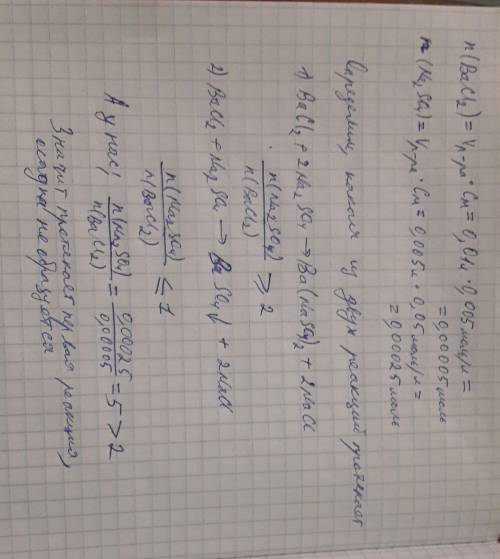 n(BaCl2) = Vр-ра · Cм = 0,01л · 0,005 моль/л =
= 0,00005 моль
n(Na2SO4) = Vр-ра · Cм = 0,005л · 0,05 моль/л =
= 0,00025 моль
Определим, какая из двух реакций протекает
1) BaCl2 + 2Na2SO4 → Ba(NaSO4)2 + 2NaCl
n(Na2SO4)
n(BaCl2) ≥ 2
2) BaCl2 + Na2SO4 → BaSO4↓ + 2NaCl
n(Na2SO4)
n(BaCl2) ≤ 1
А у нас: n(Na2SO4) / n(BaCl2) = 0,00025 / 0,00005 = 5 > 2
Значит протекает первая реакция,
осадка не образуется